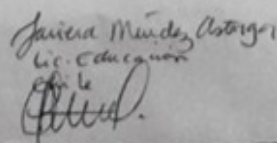 Javiera Méndez Astorga
Lic. Educación